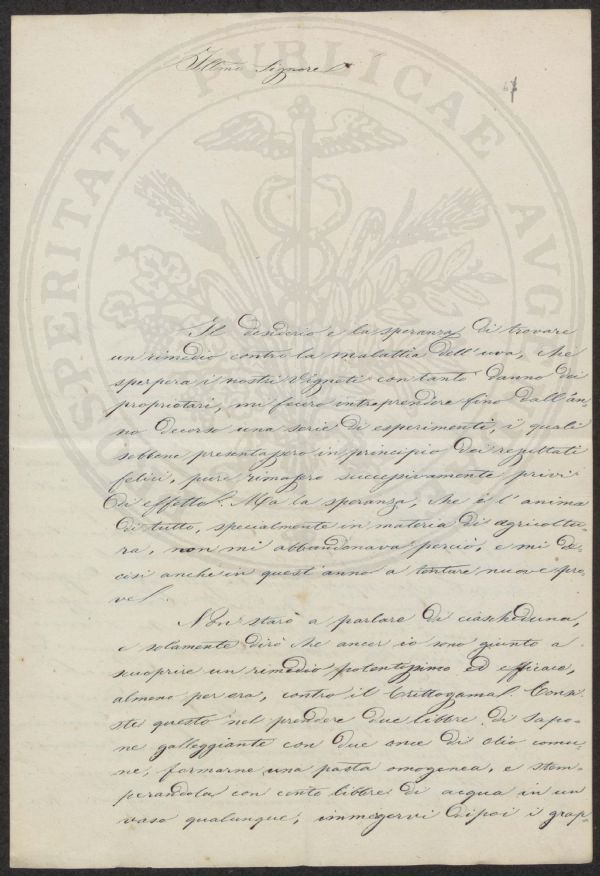 Illmo Signore
47
Il desiderio e la speranza di trovare
un rimedio contro la malattia dell'uva, che
sperpera i nostri vigneti con tanto danno dei
proprietari, mi fecero intraprendere fino dall'an-
no decorso una serie di esperimenti, i quali
sebbene presentassero in principio dei rezultati
felici, pure rimasero successivamente privi
di effetto. Ma la speranza, che è l'anima
di tutto, specialmente in materia di agricoltu-
ra, non mi abbandonava perciò, e mi de-
cisi anche in quest'anno a tentare nuove pro-
ve.
Non starò a parlare di ciascheduna,
e solamente dirò che ancor io sono giunto a
scuoprire un rimedio potentissimo ed efficace,
almeno per ora, contro il Crittogama. Consi-
ste questo nel prendere due libbre di sapo-
ne galleggiante con due once di olio comu-
ne, formarne una pasta omogenea, e stem-
perandola con cento libbre di acqua in un
vaso qualunque, immergervi dipoi i grap-
PROSPERITATI PUBLICAE AUGE